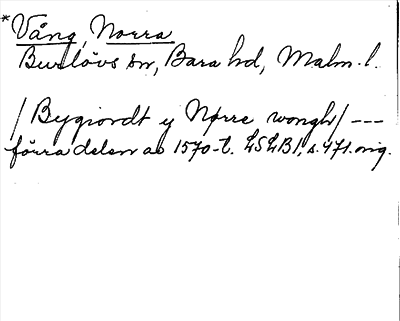 *Vång, Norra
Burlövs sn, Bara hd, Malm. l.
/Bygiordt ÿ Nørre wongh/ ---
förra delen av 1570-t. LSLB1, s. 471. orig.